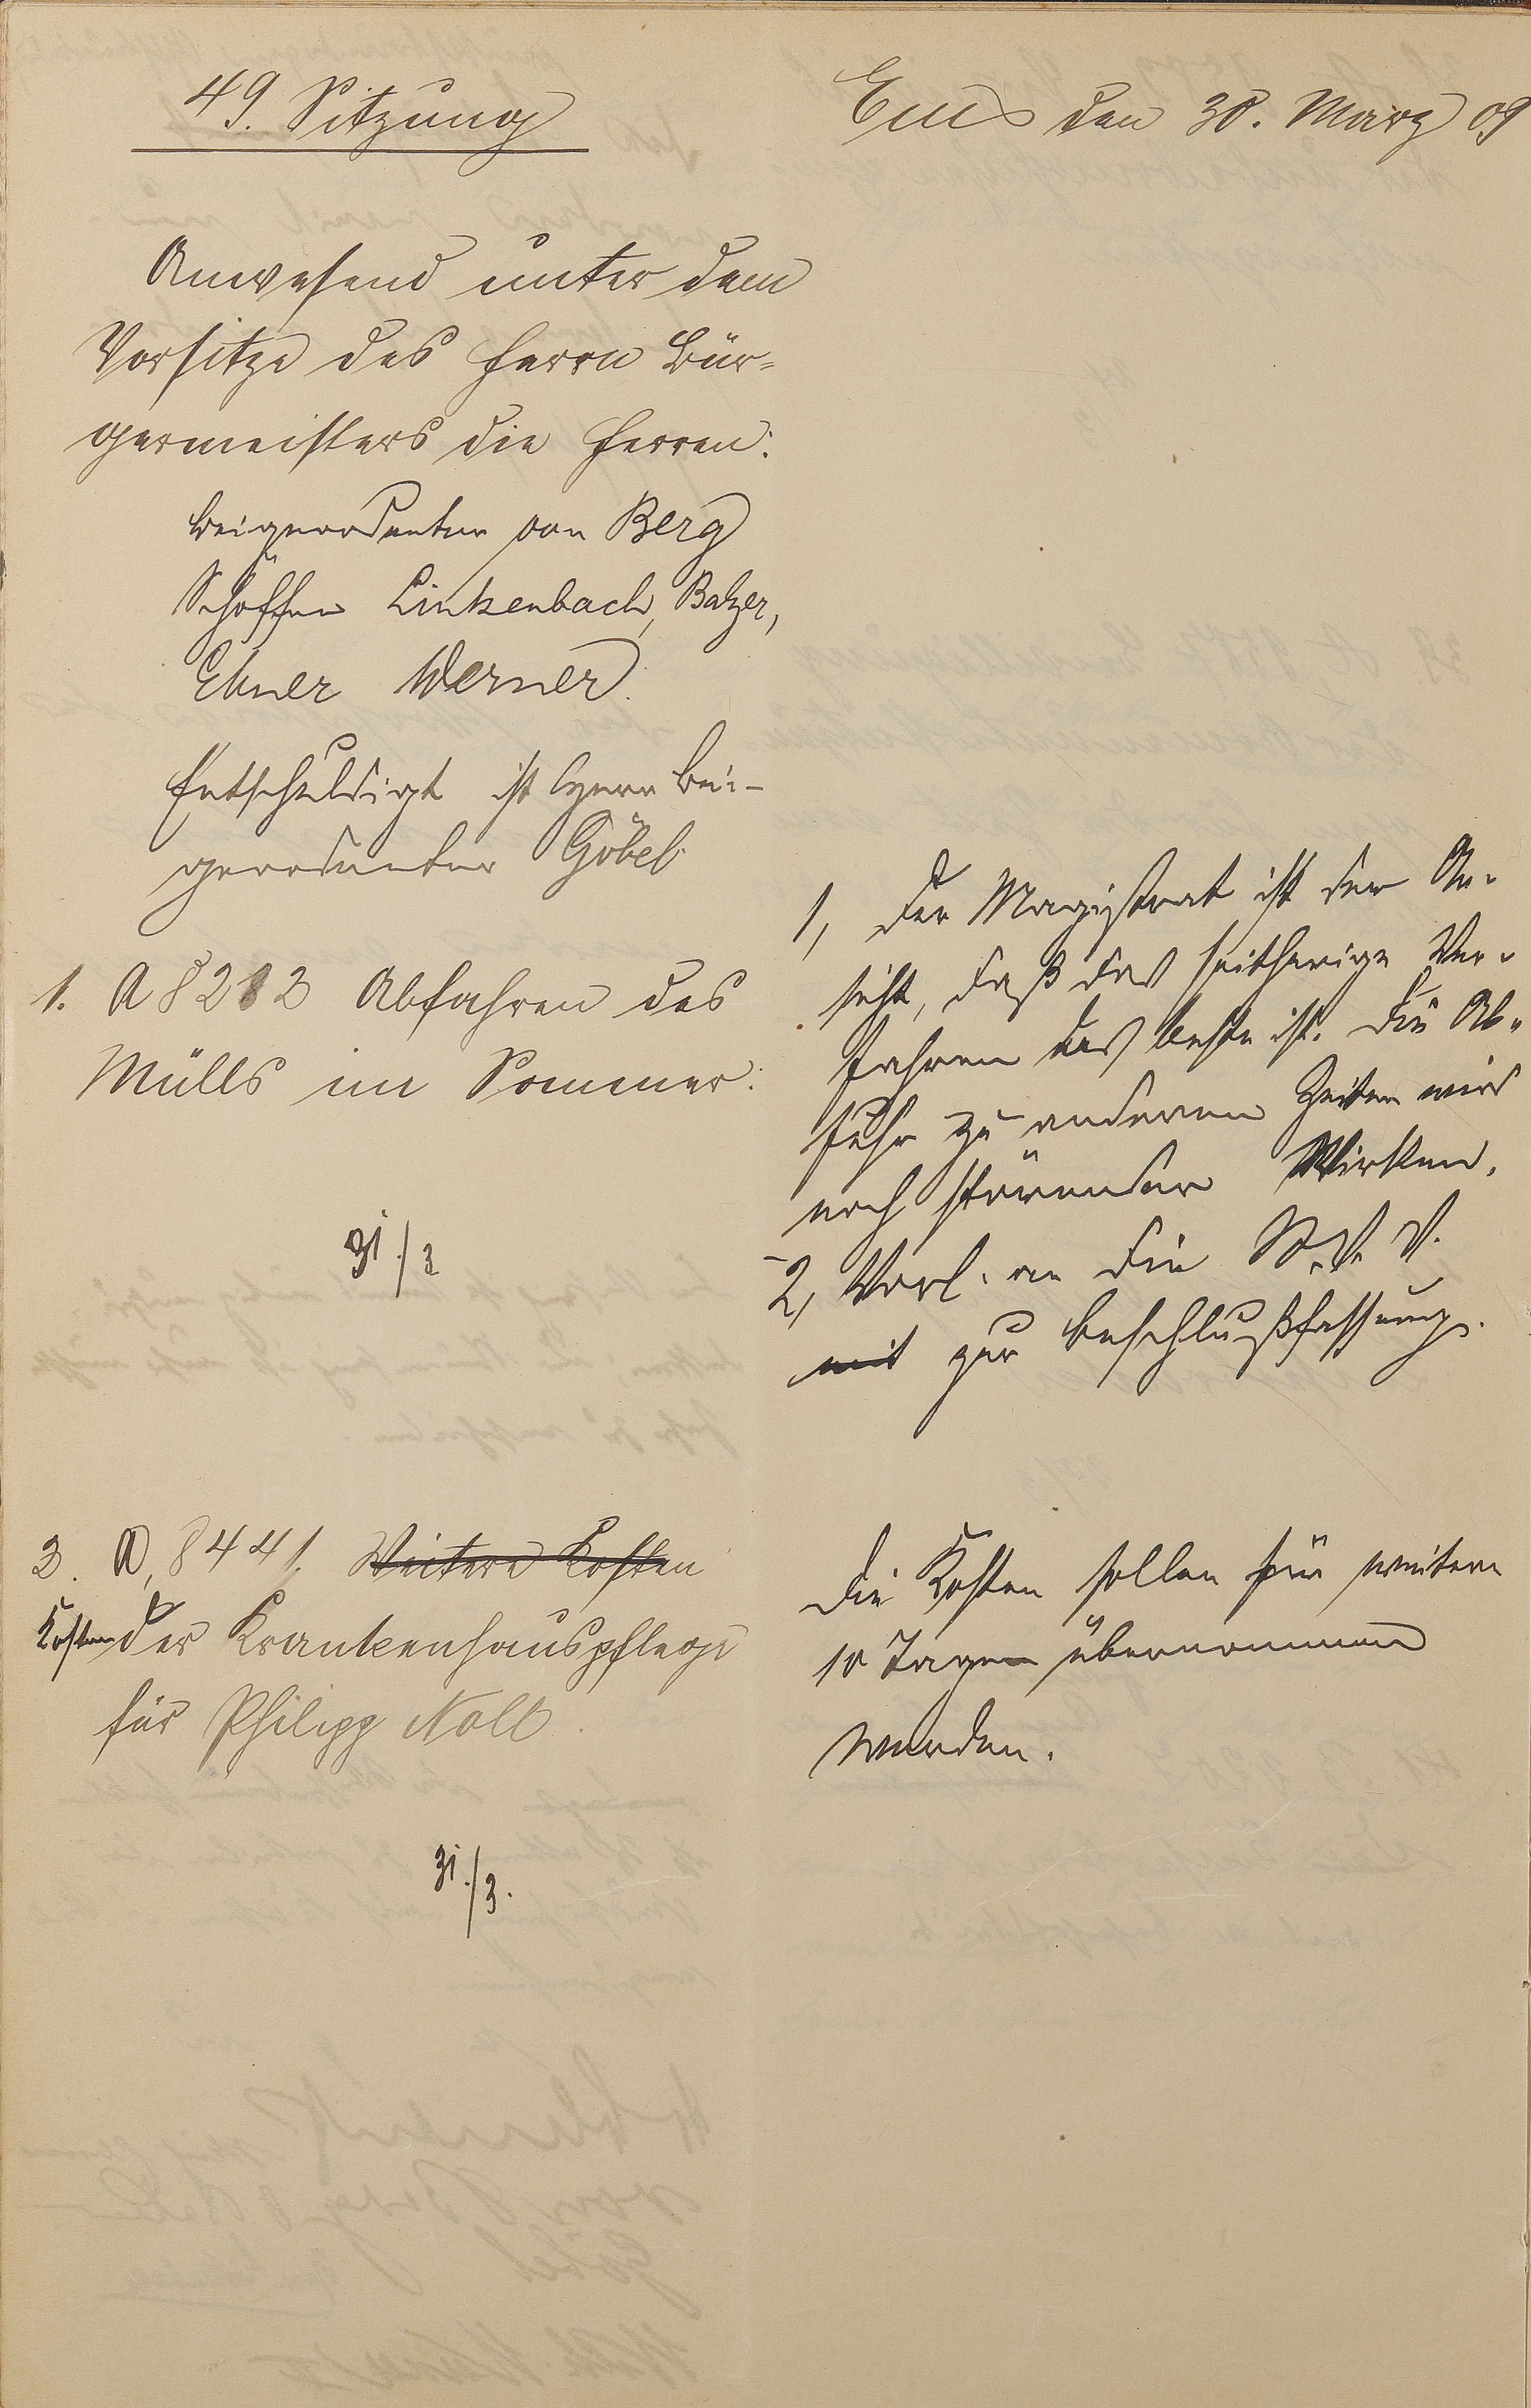 49. Sitzung
Ems den 30. März 09
Anwesend unter dem
Vorsitze des Herrn Bür-
germeisters die Herren:
Beigeordneter von Berg
Schöffen Linkenbach, Balzer,
Ebner Werner.
Entschuldigt ist Herr Bei-
geordneter Göbel
1. A 8282 Abfahren des
Mülls im Sommer:
31./3
1, Der Magistrat ist der An-
sicht, daß das seitherige Ver-
fahren das beste ist. Die Ab-
fuhr zu anderen Zeiten wird
noch störender Wirken.
2, Vorl. an die St. V. V.
mit zur Beschlußfassung.
2. A, 8441. Weitere Kosten
Kosten der Krankenhauspflege
für Philipp Noll.
31./3.
Die Kosten sollen für weitere
10 Tagen übernommen
werden.